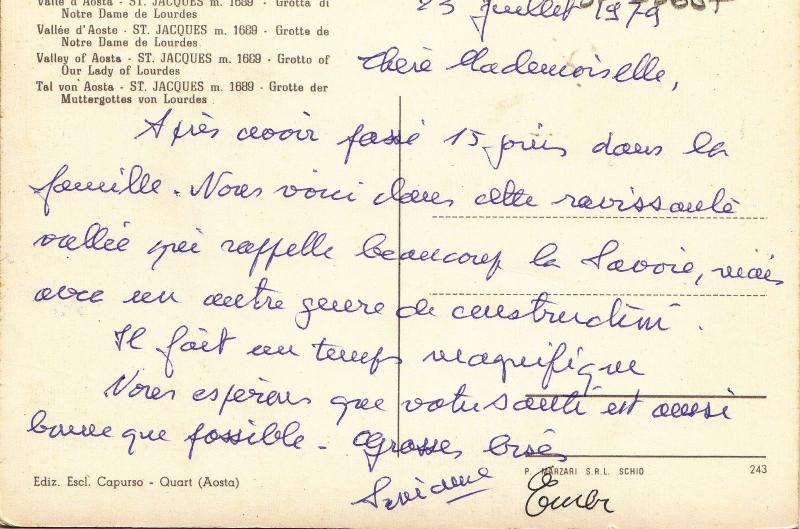 Valle d'Aosta - ST. JACQUES m. 1689 - Grotta di
Notre Dame de Lourdes
Vallée d'Aoste - ST. JACQUES m. 1689 - Grotte de
Notre Dame de Lourdes
Valley of Aosta - ST. JACQUES m. 1689 - Grotto of
Our Lady of Lourdes
Tal von Aosta - ST. JACQUES m. 1689 - Grotte der
Muttergottes von Lourdes
Juillet 1979
Chère Mademoiselle,
Après avoir passé 15 jours dans la
famille. Nous voici dans cette ravissante
vallée qui rappelle beaucoup la Savoie, mais
avec un autre genre de construction.
Il fait un temps magnifique
Nous espérons que votre santé est aussi
bonne que possible - Grosses bises
Ediz. Escl. Capurso - Quart (Aosta)
P. MARZARI S.R.L. SCHIO
243